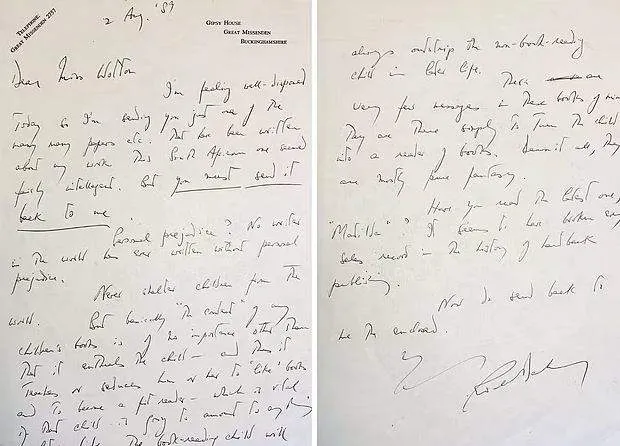 TELEPHONE
GREAT MISSENDEN 2757
GIPSY HOUSE
GREAT MISSENDEN
BUCKINGHAMSHIRE
2 Aug. '89
Dear Miss Wotton
I'm feeling well-disposed
today so I'm sending you just one of the
many many papers etc. that have been written
about my work. This South African one seemed
fairly intelligent. But you must send it
back to me.
Personal prejudice? No writer
in the world has ever written without personal
prejudice.
Never shelter children from the
world.
But basically "the content" of any
children's books is of no importance other than
that it enthralls the child – and thus it
teaches or seduces him or her to "like" books
and to become a fit reader – which is vital
if that child is going to amount to anything
The book-reading child will
always outstrip the non-book-reading
child in later life.
There are
very few messages in these books of mine.
They are there simply to turn the child
into a reader of books. Damn it all, they
are mostly pure fantasy.
Have you read the latest one,
"Matilda"? It seems to have broken
sales record in the history of hardback
publishing.
Now do send back to
me the enclosed.
Roald Dahl